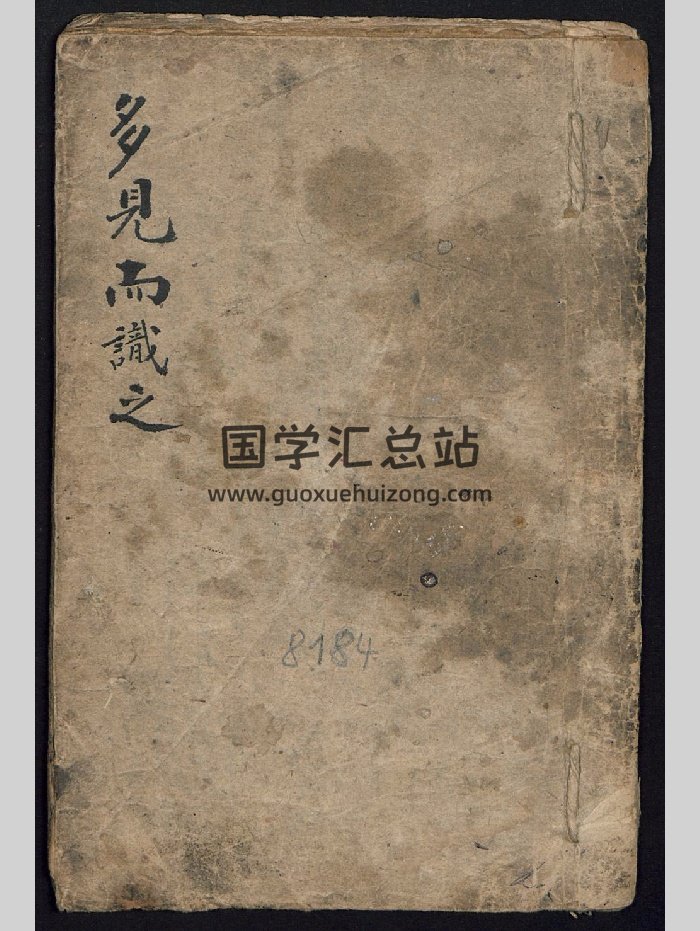 多見而識之
国学汇总站
www.guoxuehuizong.com
8184